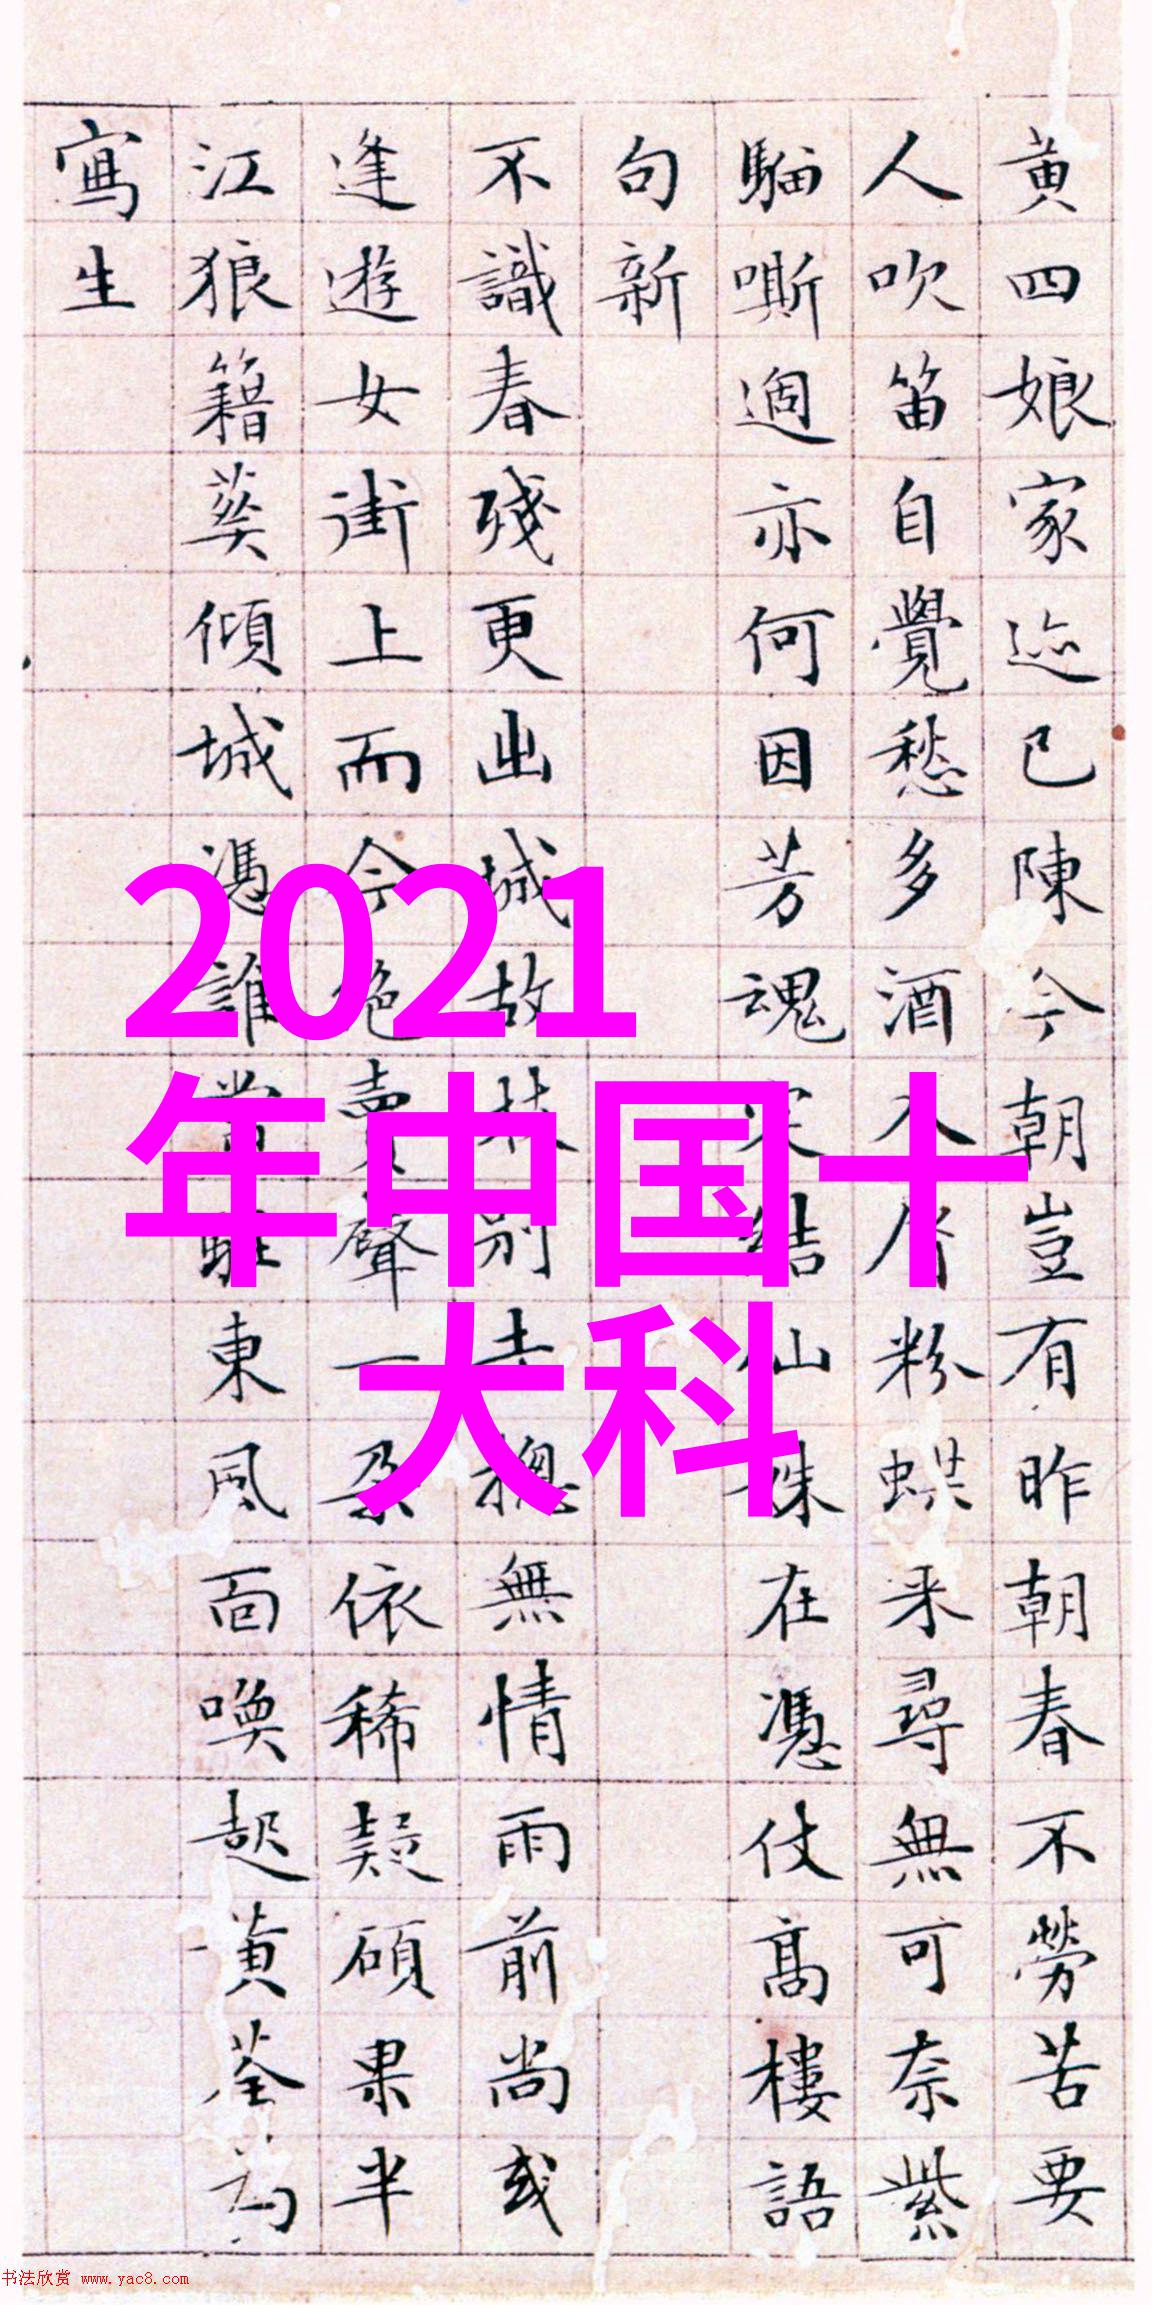 黄四娘家迹已陳今朝豈有昨朝春不勞苦要
人吹笛自覺愁多酒入粉蝶来尋無可奈紫
騮嘶過亦何因芳魂結仙姝在憑仗高樓語
句新
不識春殘更出城故枝別去摠無情雨前尚或
逢遊女街上而今絶賣聲一朶依稀疑碩果半
江狼籍葵傾城憑誰東風面喚起黄荃為
寫生
2021
年中国十
大科
书法欣赏 www.yac8.com